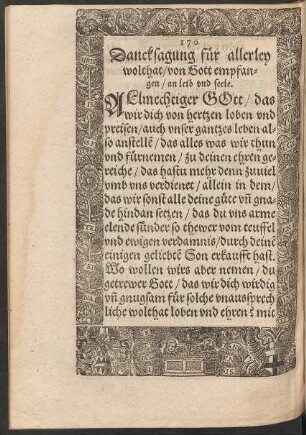 170
Dancksagung für allerley
wolthat/ von Gott empfan-
gen/ an leib vnd seele.
ALlmechtiger GOtt/ das
wir dich von hertzen loben vnd
preisen/ auch vnser gantzes leben al-
so anstellẽ/ das alles was wir thun
vnd fürnemen/ zu deinen ehren ge-
reiche/ das hastu mehr denn zuuiel
vmb vns verdienet/ allein in dem/
das wir sonst alle deine güte vñ gna-
de hindan setzen/ das du vns arme
elende sünder so thewer vom teuffel
vnd ewigen verdamnis/ durch deinẽ
einigen geliebtẽ Son erkaufft hast.
Wo wollen wirs aber nemen/ du
getrewer Gott/ das wir dich wirdig
vñ gnugsam für solche vnaussprech
liche wolthat loben vnd ehren? mit